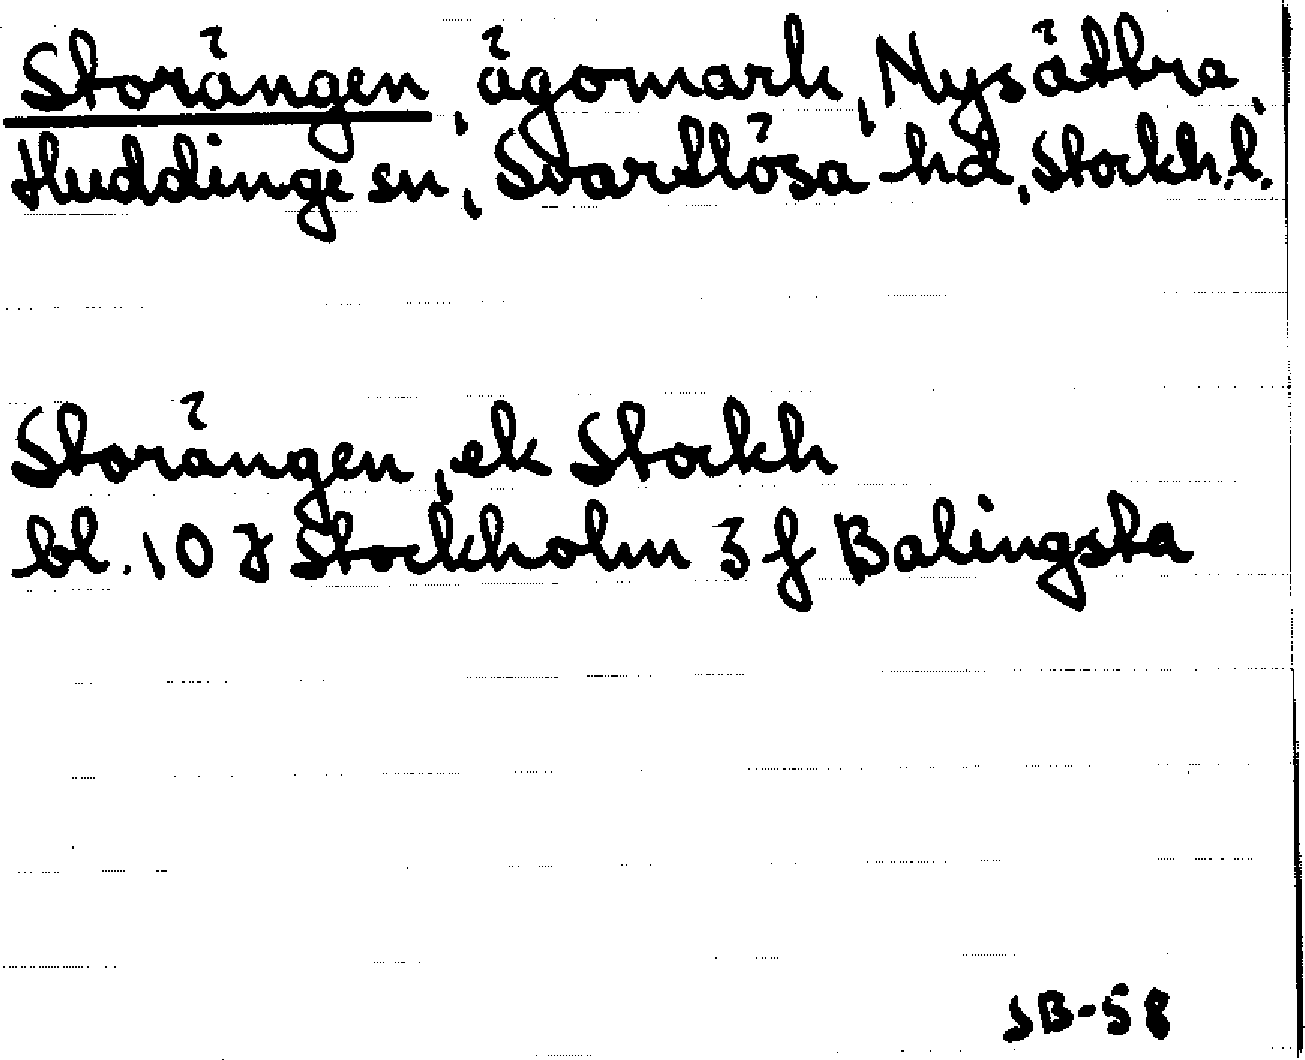 Storängen, ägomark, Nysättra,
Huddinge sn, Svartlösa hd, Stockh.l.
Storängen, ek Stockh
bl. 10 J Stockholm 3 f Balingsta
SB-58